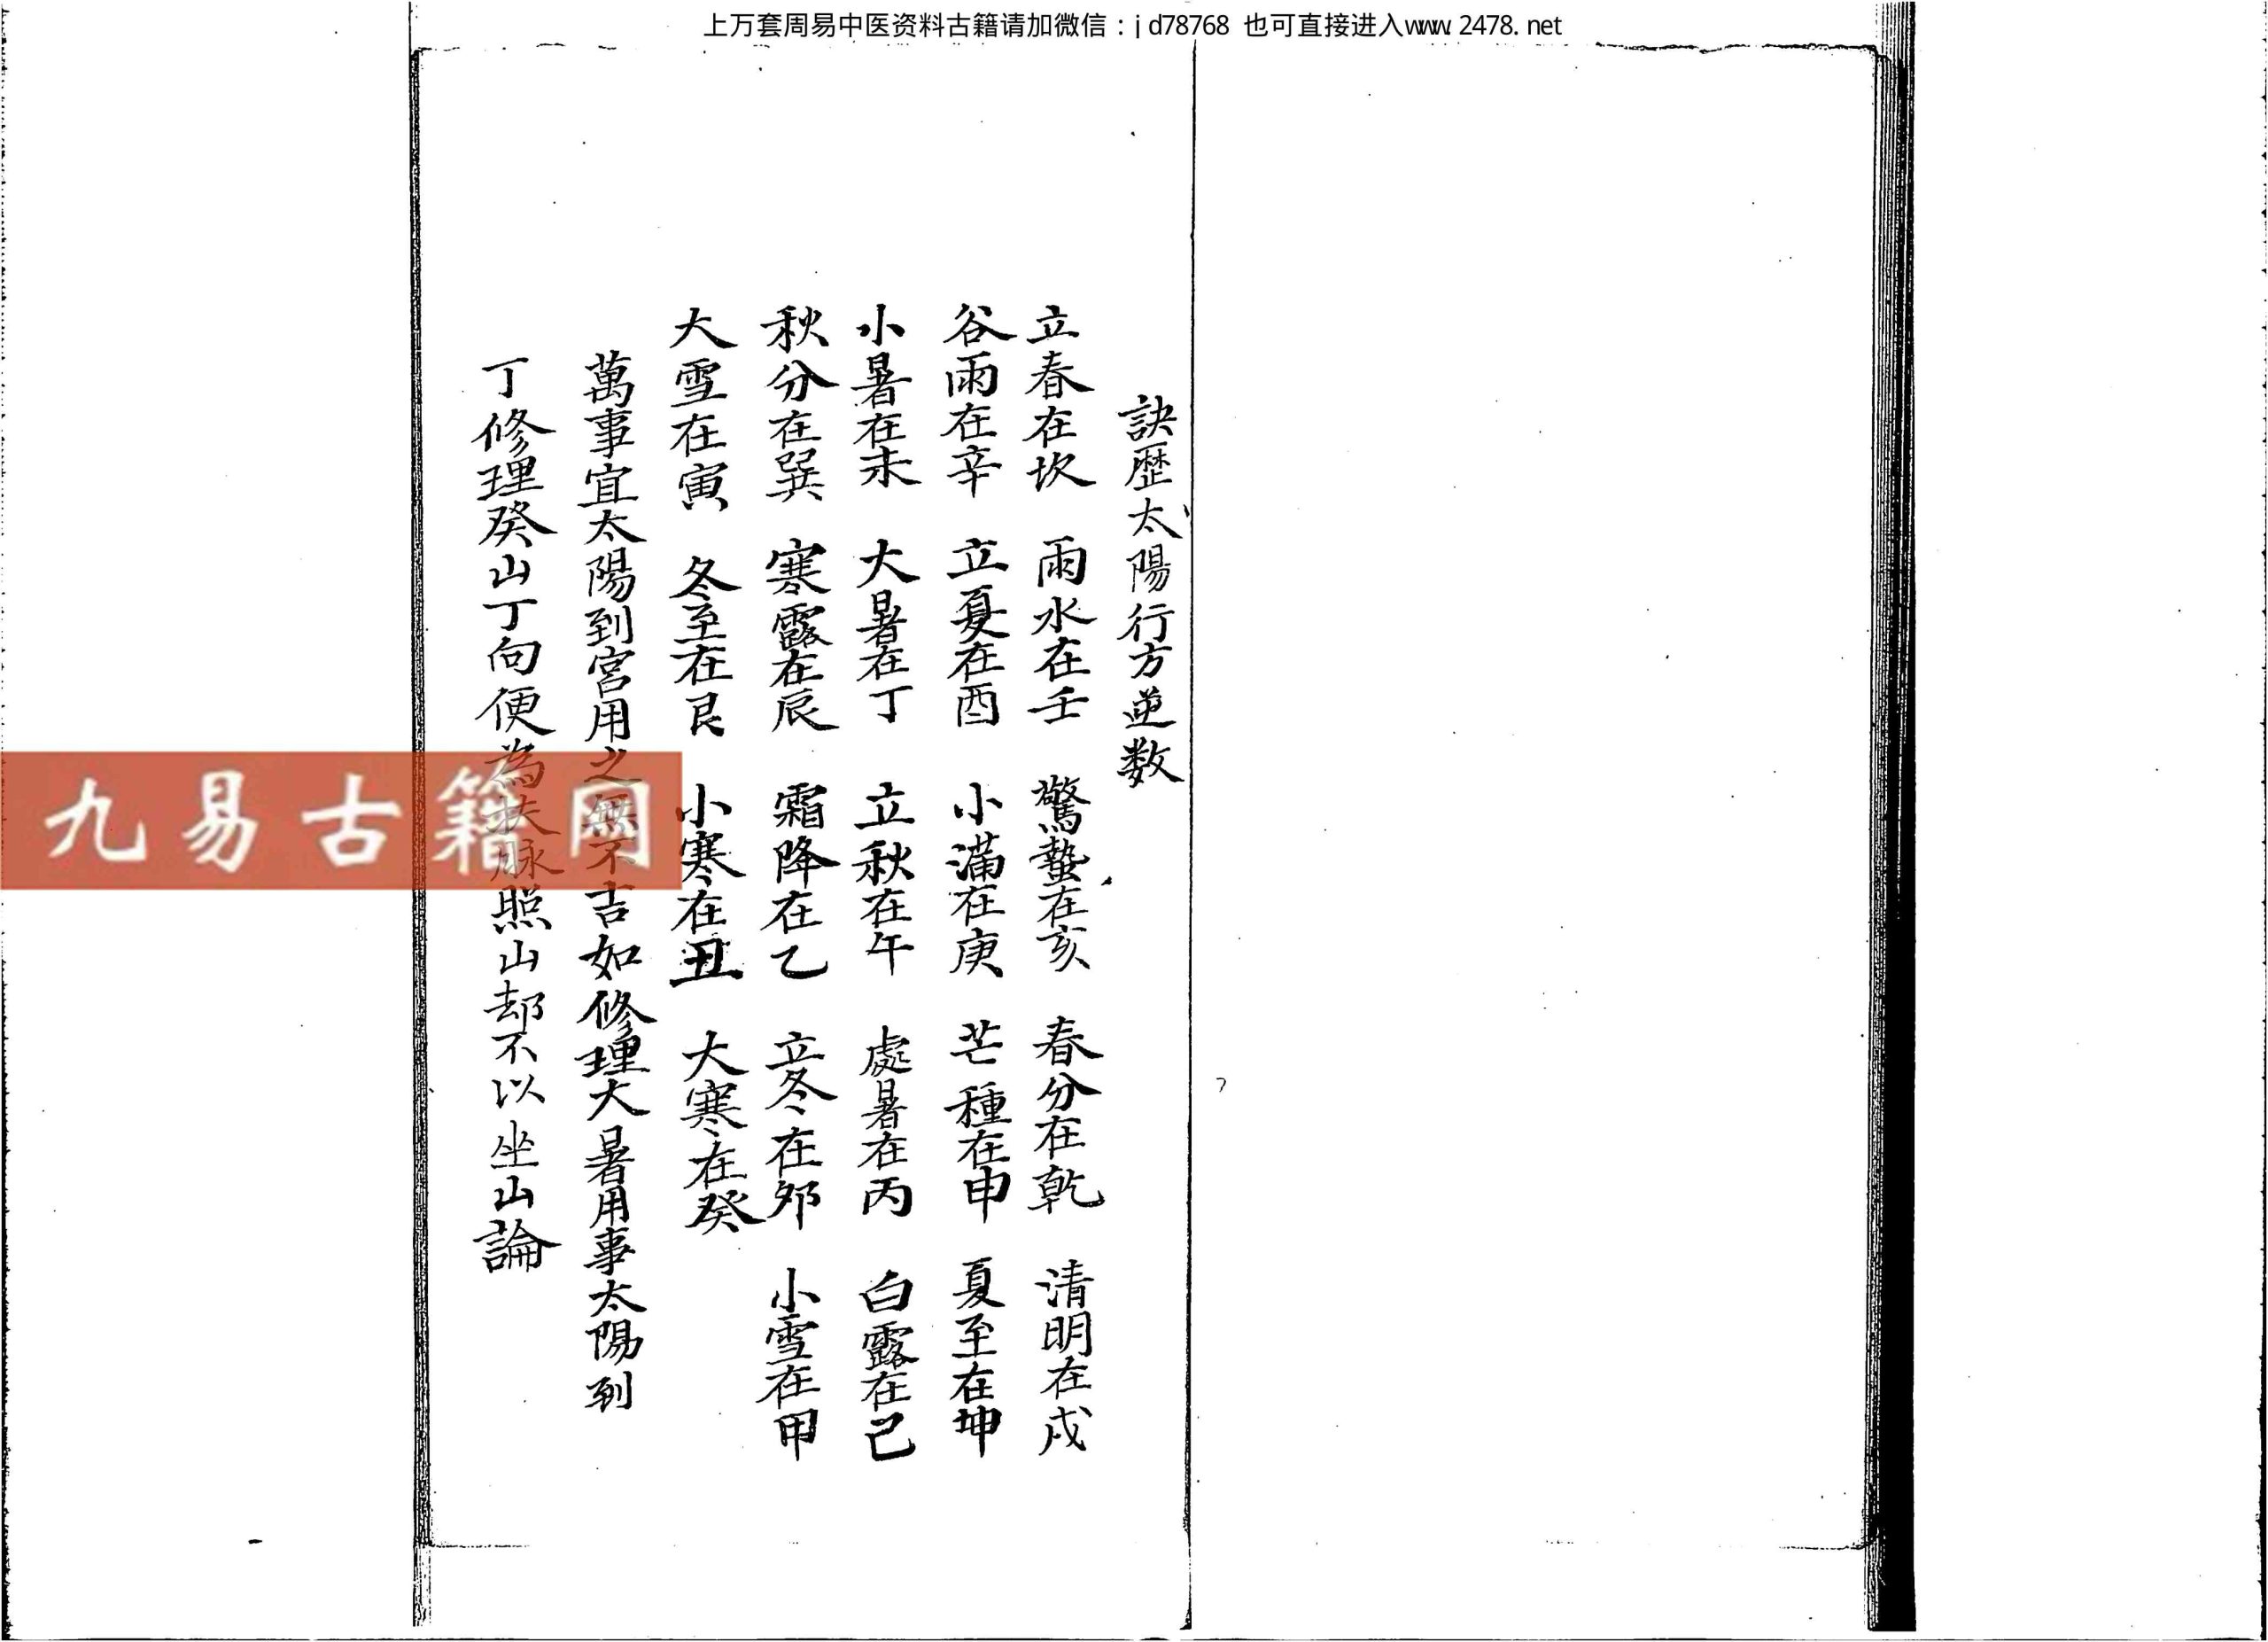 上万套周易中医资料古籍请加微信：jd78768 也可直接进入www.2478.net
訣歷太陽行方逆数
立春在坎　雨水在壬　驚蟄在亥　春分在乾　清明在戌
谷雨在辛　立夏在酉　小滿在庚　芒種在申　夏至在坤
小暑在未　大暑在丁　立秋在午　處暑在丙　白露在己
秋分在巽　寒露在辰　霜降在乙　立冬在夘　小雪在甲
大雪在寅　冬至在艮　小寒在丑　大寒在癸
萬事宜太陽到宮用之無不吉如修理大暑用事太陽到
丁修理癸山丁向便為扶脉照山却不以坐山論
九易古籍网